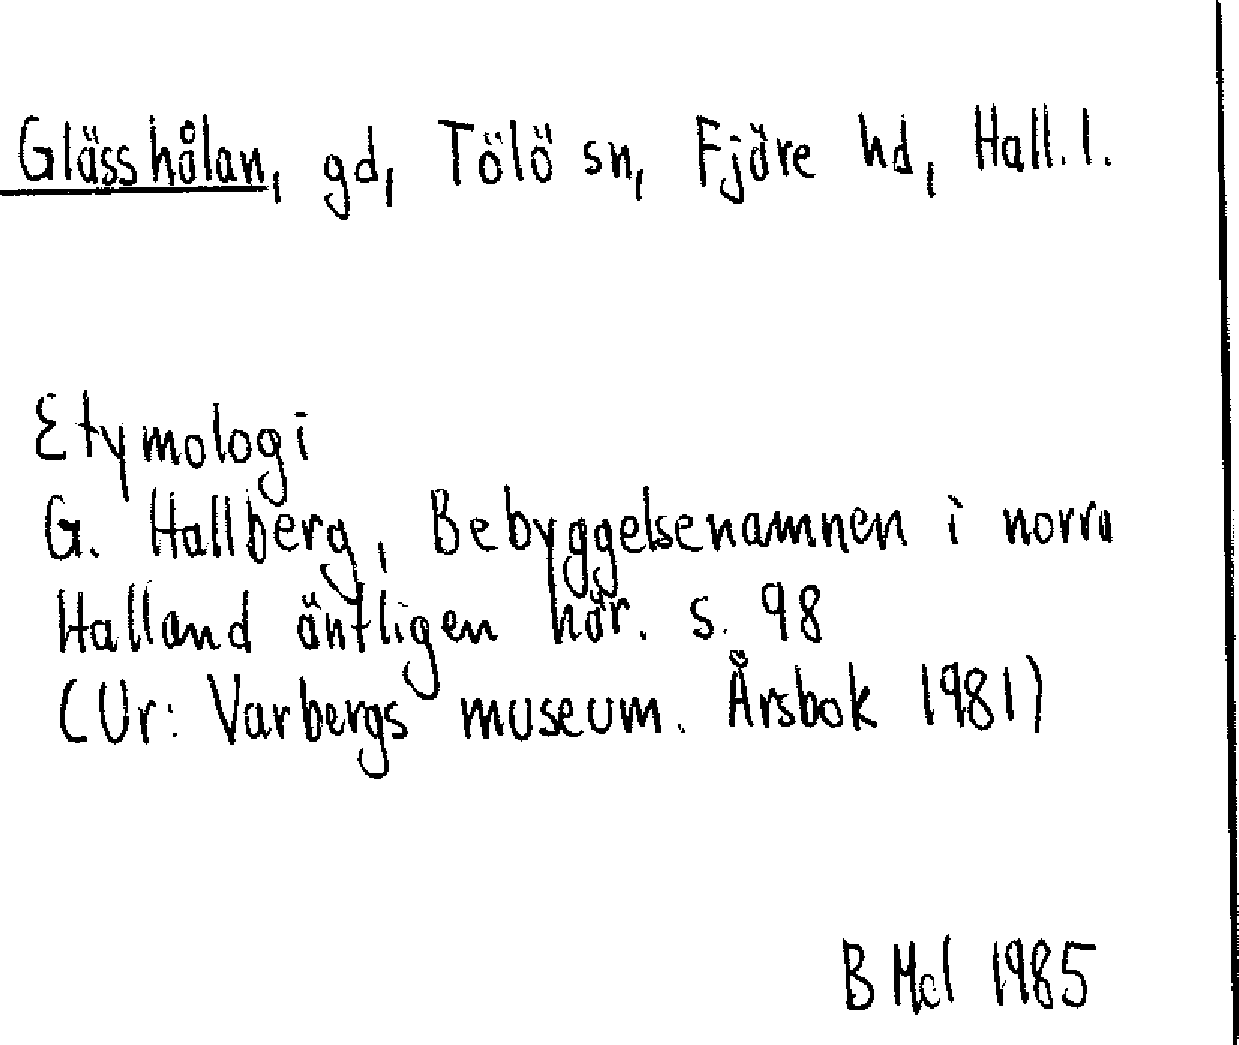 Glässhålan, gd, Tölö sn, Fjäre hd, Hall. l.
Etymologi
G. Hallberg, Bebyggelsenamnen i norra
Halland äntligen här. s. 98
(Ur: Varbergs museum. Årsbok 1981)
B Mcl 1985